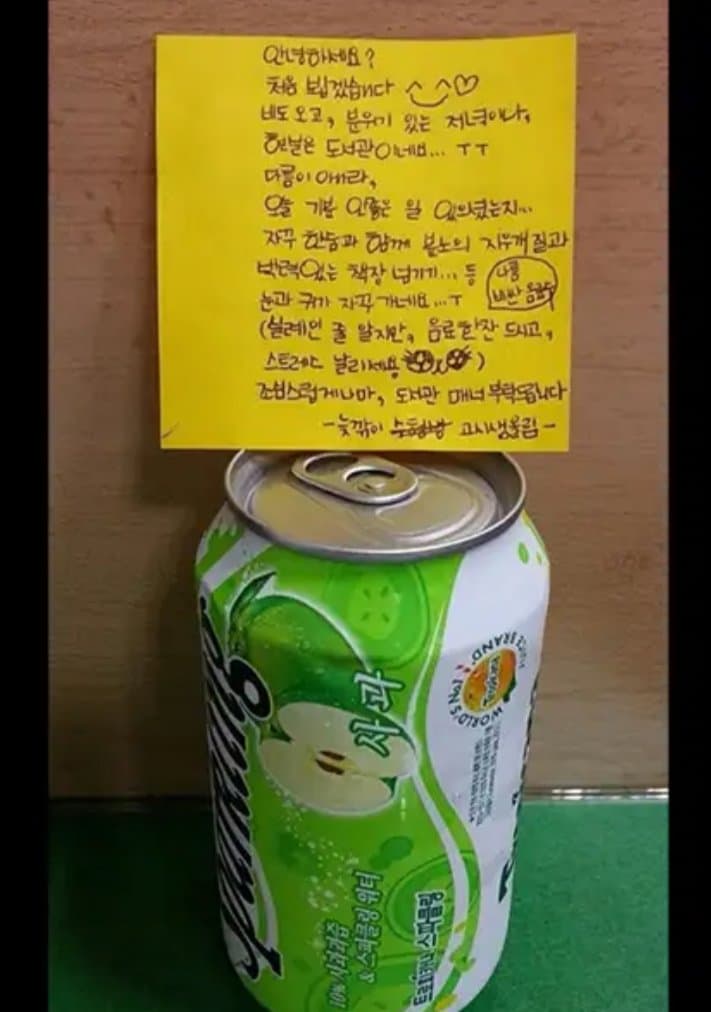 안녕하세요?
처음 뵙겠습니다 ^_^♡
비도 오고, 분위기 있는 저녁이나,
현실은 도서관이네요... ㅜㅜ
다름이 아니라,
오늘 기분 안좋은 일 있으셨는지...
자꾸 한숨과 함께 분노의 지우개질과
박력있는 책장 넘기기... 등
나름
비싼 음료수
눈과 귀가 자꾸 가네요...ㅜ
(실례인 줄 알지만, 음료한잔 드시고,
스트레스 날리세요 )
조심스럽게나마, 도서관 매너 부탁드립니다
-늦깎이 고시생올림-
Sparkling
사과
WORLD'S No.1 JUICE BRAND
Tropicana
10% 사과과즙
& 스파클링 워터
트로피카나 스파클링